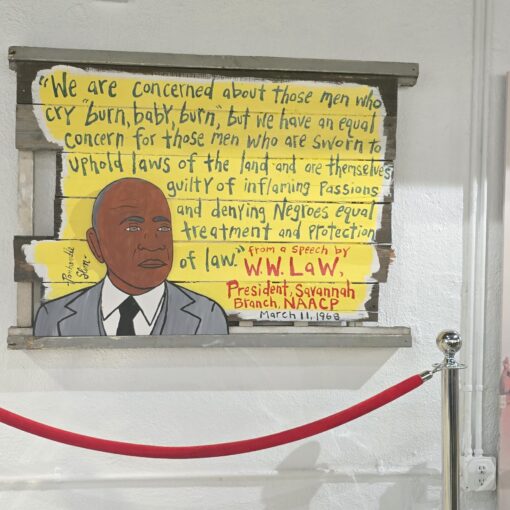 "We are concerned about those men who
cry "burn, baby, burn", but we have an equal
concern for those men who are sworn to
uphold laws of the land and are themselves
guilty of inflaming passions
and denying Negroes equal
treatment and protection
of law." from a speech by
W.W. LAW,
President, Savannah
Branch, NAACP
March 11, 1968
Panhandle
Slim-